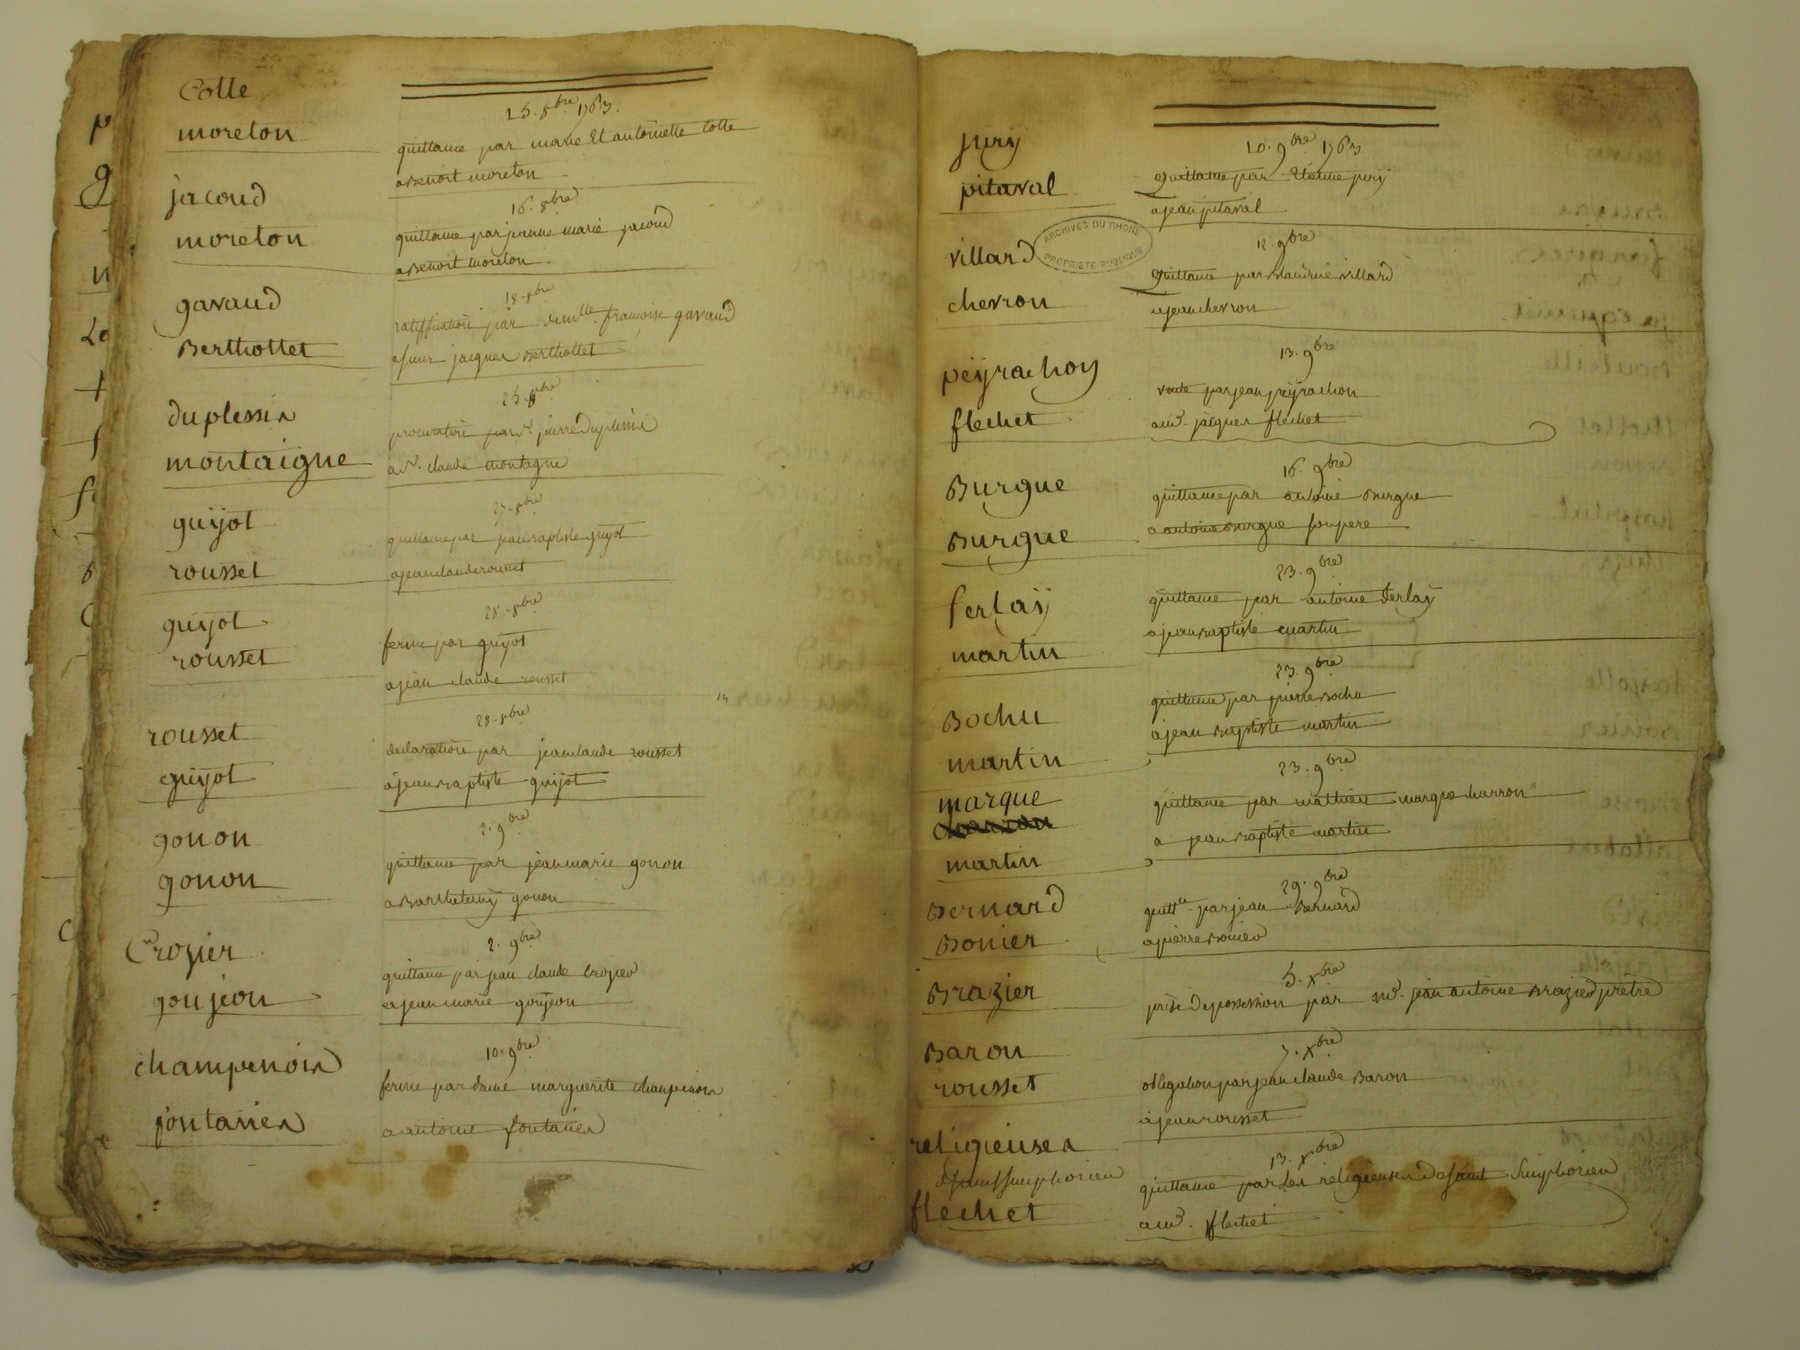 Colle
moreton
15. 8bre 1763.
quittance par marie Et antoinette Colle
a Benoit moreton
jacoud
moreton
16. 8bre
quittance par jeanne marie jacoud
a Benoit moreton
gavaud
Berthollet
18. 8bre
ratiffication par demlle. francoise gavaud
a sieur jacques Berthollet
duplessis
montaigne
25. 8bre
procuration par sr. pierre duplessis
a mr. claude montagne
guÿot
rousset
27. 8bre
quittance par jean baptiste guÿot
a jean claude rousset
guÿot
rousset
28. 8bre
ferme par guÿot
a jean claude rousset
rousset
guÿot
28. 8bre
declaration par jean claude rousset
a jean Baptiste guÿot
gonon
gonon
2. 9bre
quittance par jean marie gonon
a Barthelemy gonon
Crozier
goujeon
2. 9bre
quittance par jean claude Crozier
a jean marie goujeon
champenois
fontanes
10. 9bre
ferme par dame marguerite champenois
a antoine fontanes
jury
pitaval
10. 9bre 1763
quittance par Etienne jury
a jean pitaval
ARCHIVES DU RHÔNE
PROPRIÉTÉ PUBLIQUE
villard
chevron
12. 9bre
quittance par villard
a jean chevron
peÿrachon
flechet
13. 9bre
vente par jean peÿrachon
a mr. jacques flechet
Burgue
Burgue
16. 9bre
quittance par antoine Burgue
a antoine Burgue son pere
ferlaÿ
martin
23. 9bre
quittance par antoine ferlaÿ
a jean Baptiste martin
Bochu
martin
23. 9bre
quittance par pierre Bochu
a jean Baptiste martin
marque
charron
martin
23. 9bre
quittance par mathieu marque charron
a jean Baptiste martin
Bernard
Bonier
29. 9bre
quittce par jean Bernard
a pierre Bonier
Brazier
5. Xbre
prise de possession par mr. jean antoine Brazier prêtre
Baron
rousset
7. Xbre
obligation par jean claude Baron
a jean rousset
religieuses
de saint simphorien
flechet
13. Xbre
quittance par les religieuses de saint Simphorien
a mr. flechet